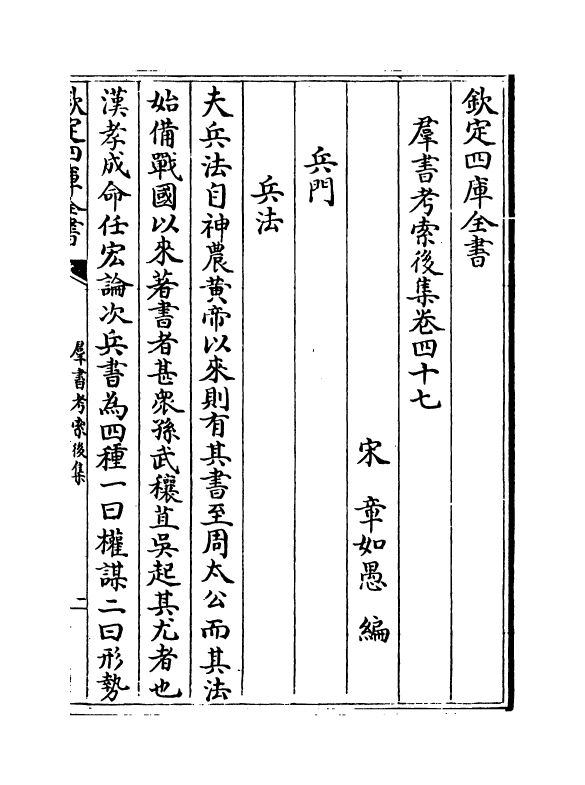 欽定四庫全書
羣書考索後集卷四十七
宋 章如愚 編
兵門
兵法
夫兵法自神農黃帝以來則有其書至周太公而其法
始備戰國以來著書者甚衆孫武穰苴吳起其尤者也
漢孝成命任宏論次兵書為四種一曰權謀二曰形勢
欽定四庫全書
羣書考索後集
二